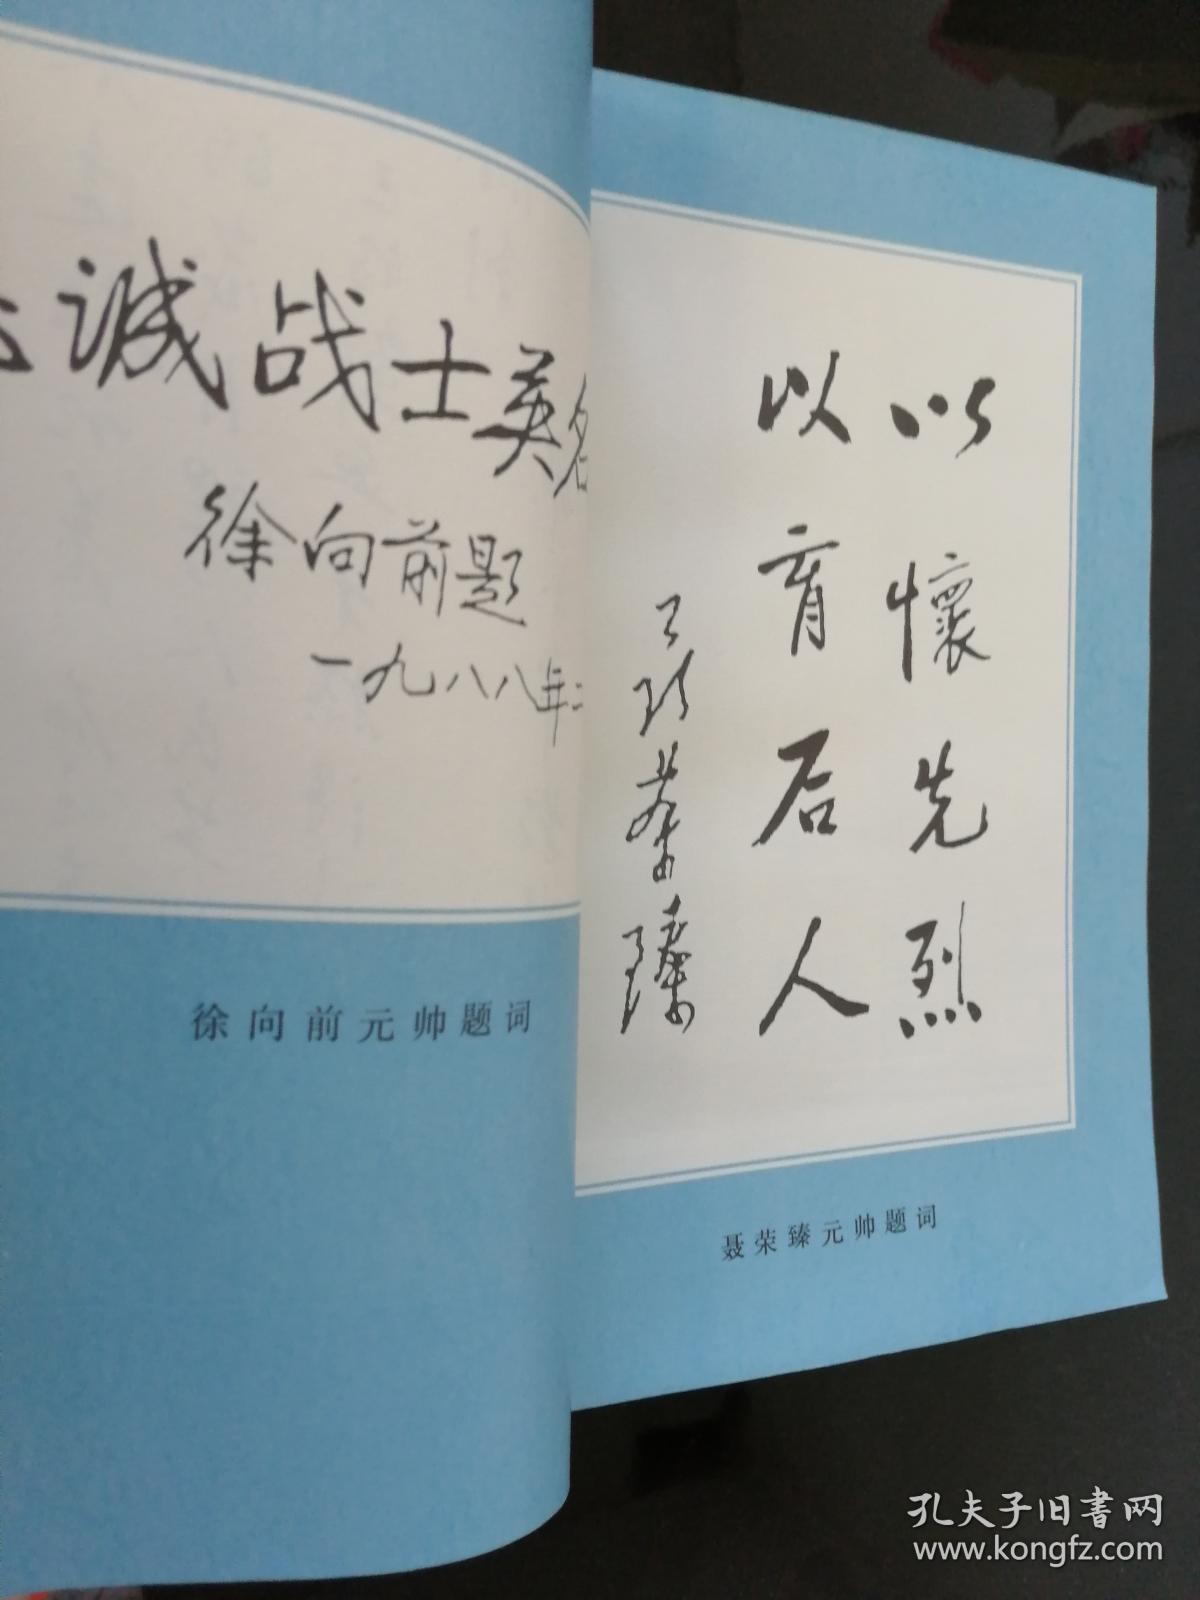 诚战士英名
徐向前题
一九八八年二
徐向前元帅题词
以懷先烈
以育后人
聂荣臻
聂荣臻元帅题词
孔夫子旧书网
www.kongfz.com